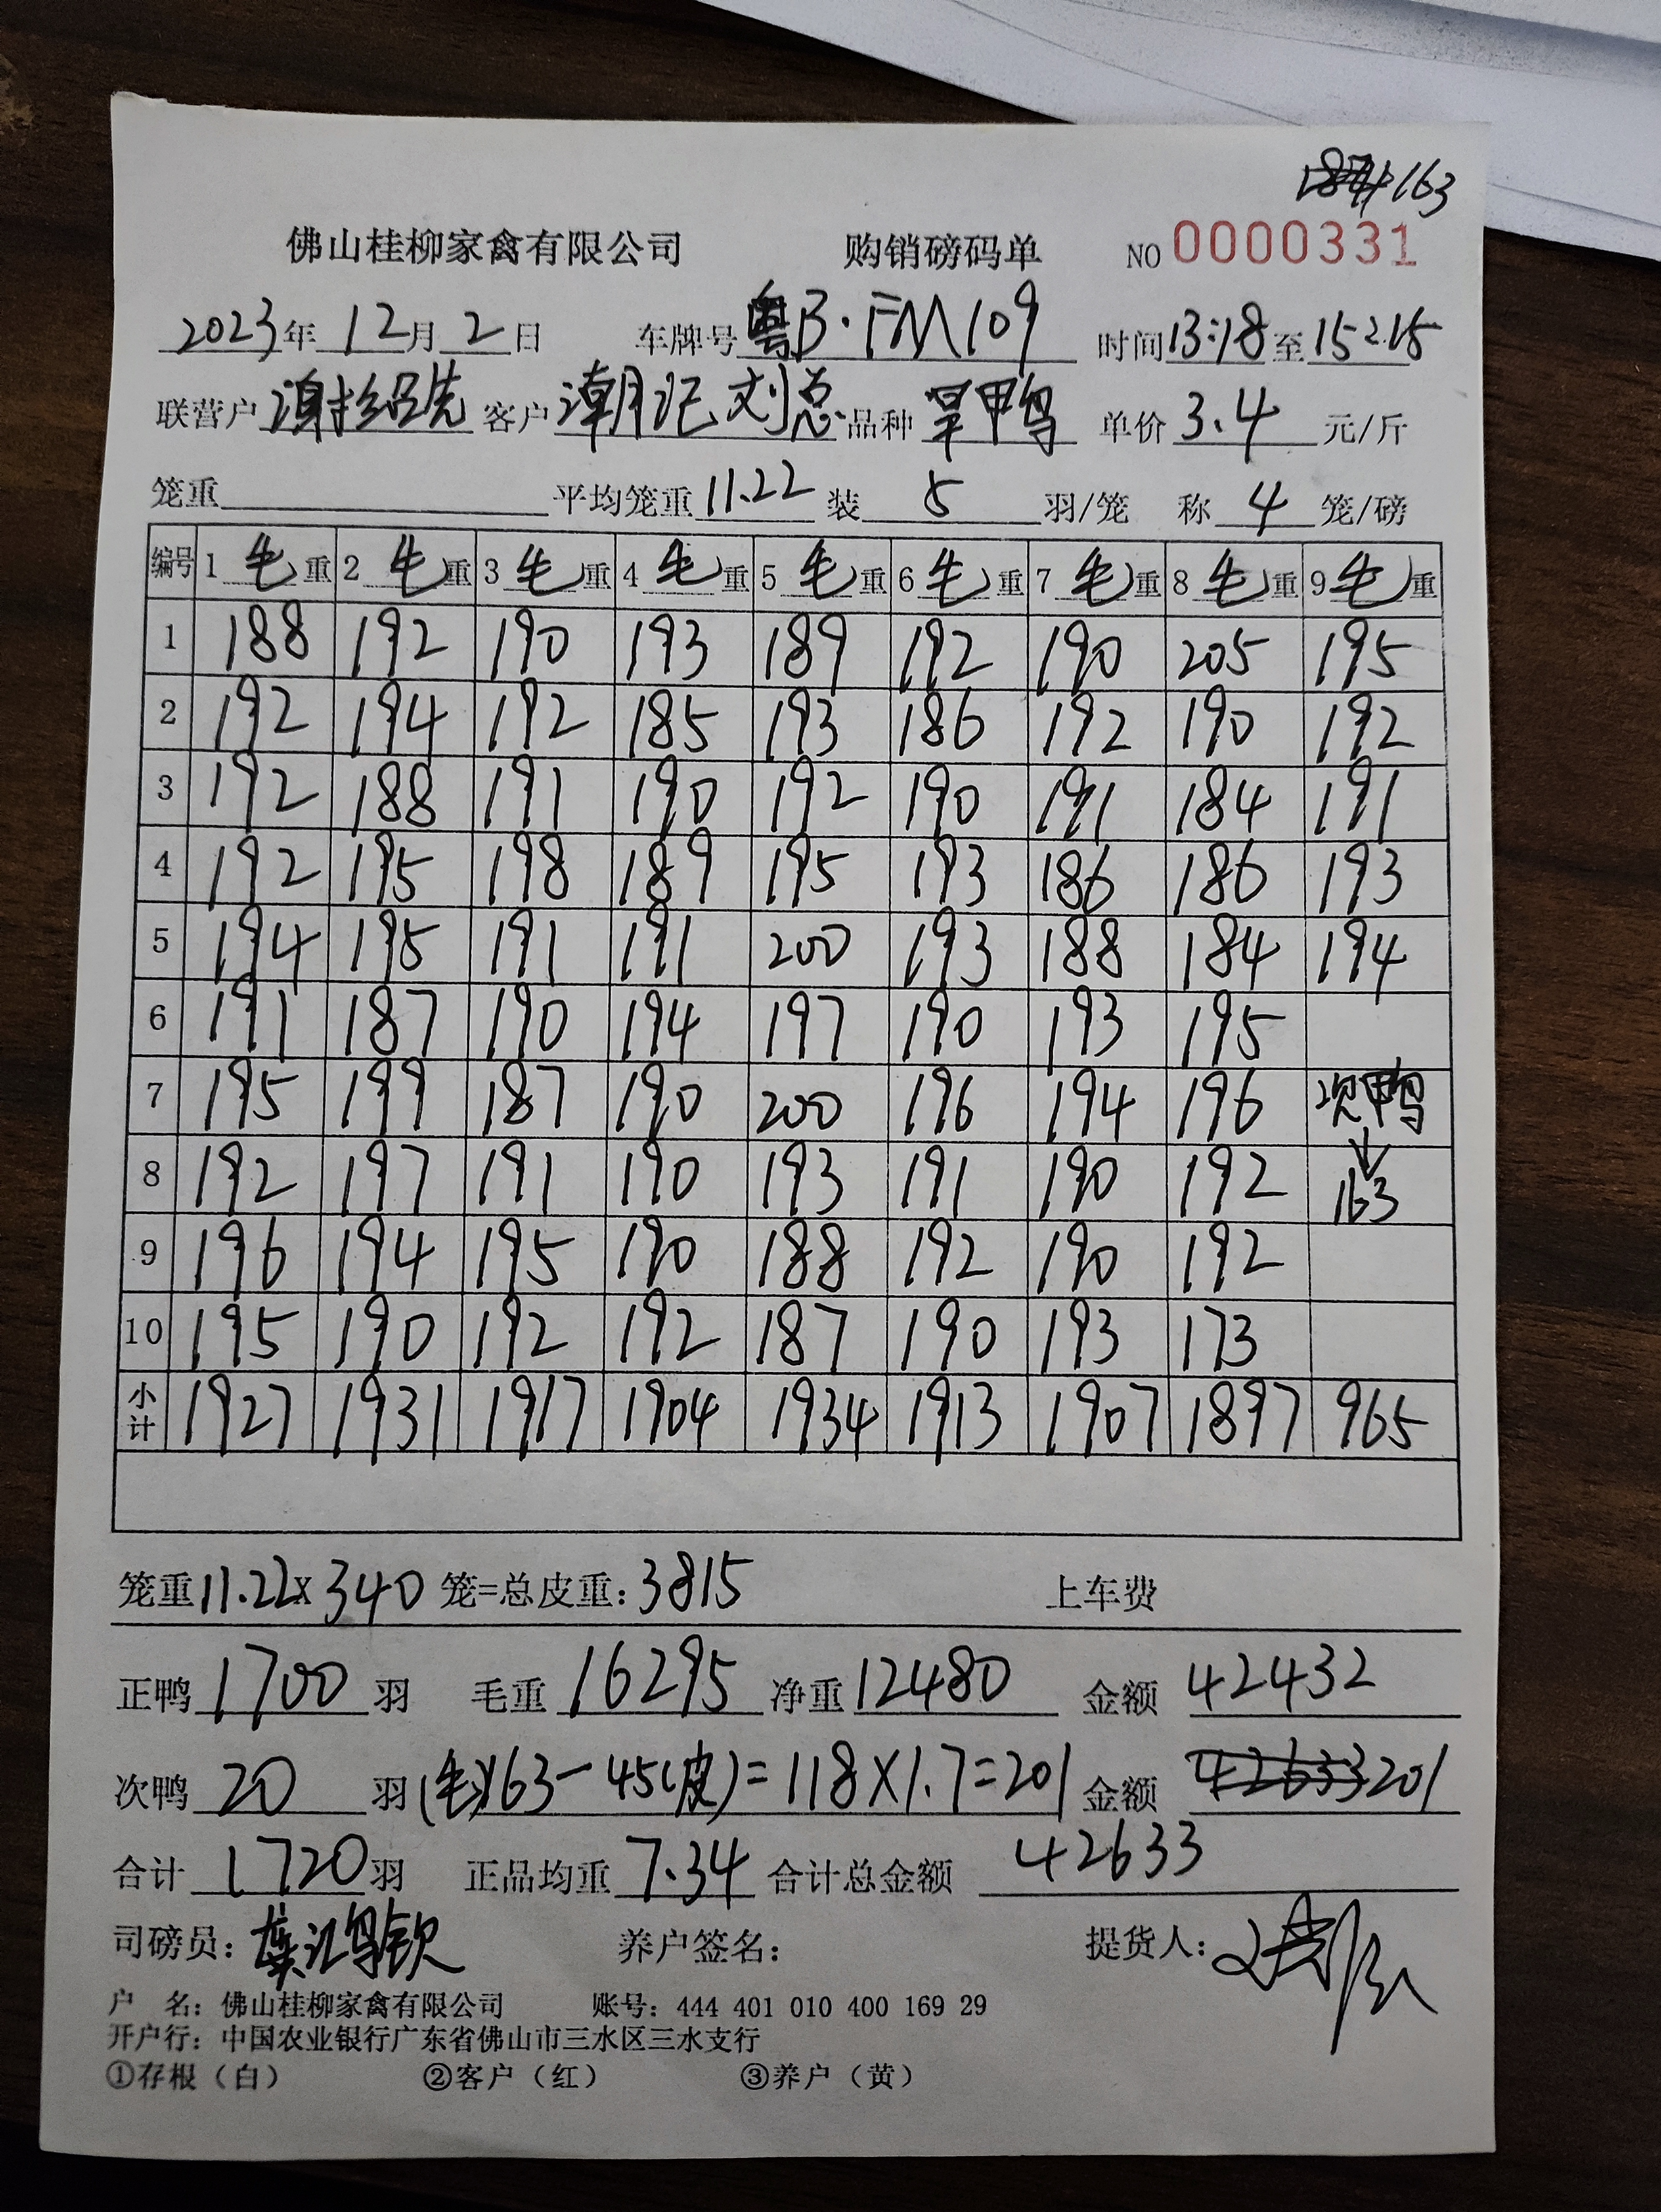 163
佛山桂柳家禽有限公司 购销磅码单 NO 0000331
2023年 12月 2日 车牌号 粤B·FM109 时间 13:18 至 15:15
联营户 谢绍先 客户 潮记刘总 品种 旱鸭 单价 3.4 元/斤
笼重 平均笼重 11.22 装 5 羽/笼 称 4 笼/磅
编号 1 毛重 2 毛重 3 毛重 4 毛重 5 毛重 6 毛重 7 毛重 8 毛重 9 毛重
1 188 192 190 193 189 192 190 205 195
2 192 194 192 185 193 186 192 190 192
3 192 188 191 190 192 190 191 184 191
4 192 195 198 189 195 193 186 186 193
5 194 195 191 191 200 193 188 184 194
6 191 187 190 194 197 190 193 195
7 195 199 187 190 200 196 194 196 次鸭
8 192 197 191 190 193 191 190 192 163
9 196 194 195 190 188 192 190 192
10 195 190 192 192 187 190 193 173
小计 1927 1931 1917 1904 1934 1913 1907 1897 965
笼重 11.22×340 笼=总皮重: 3815 上车费
正鸭 1700 羽 毛重 16295 净重 12480 金额 42432
次鸭 20 羽 (毛)163-45(皮)=118×1.7=201 金额 42633 201
合计 1720 羽 正品均重 7.34 合计总金额 42633
司磅员: 养户签名: 提货人:
户 名: 佛山桂柳家禽有限公司 账号: 444 401 010 400 169 29
开户行: 中国农业银行广东省佛山市三水区三水支行
①存根（白） ②客户（红） ③养户（黄）